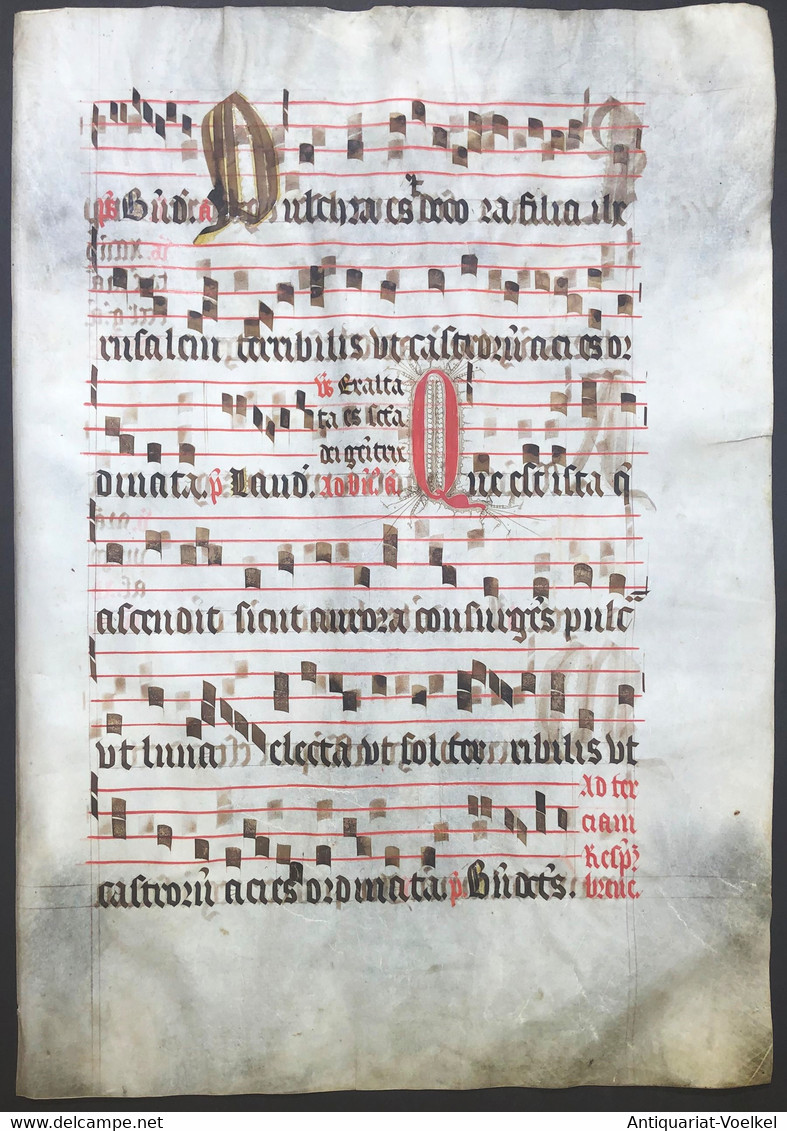 p̄s Bn̄d̄. a Pulchra es et deco ra filia ihe
rusalem terribilis vt castrorū acies or
v̄s Exalta
ta es scā
dei genitrix
dinata. p̄ Laud. Ad Bn̄. a. Que est ista q̄
ascendit sicut aurora consurgēs pulc
vt luna electa vt sol terribilis vt
castrorū acies ordinata. p̄ Bn̄dcts̄.
Ad ter
ciam
Resp̄
breue.
Antiquariat-Voelkel